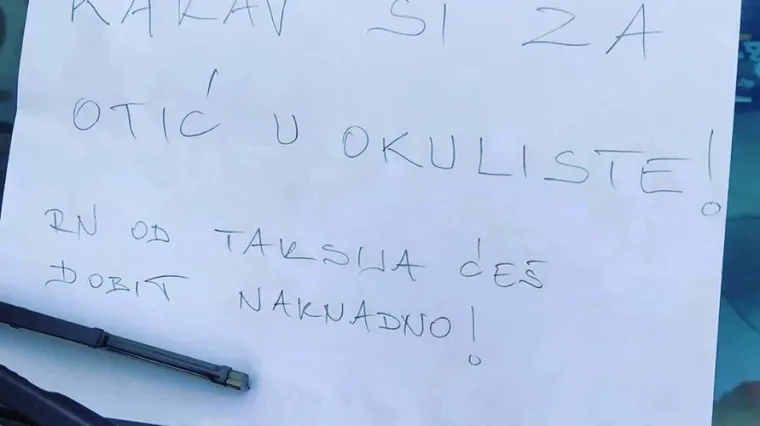 KAKAV SI ZA
OTIĆ U OKULISTE!
RN OD TAKSIJA ĆEŠ
DOBIT NAKNADNO!